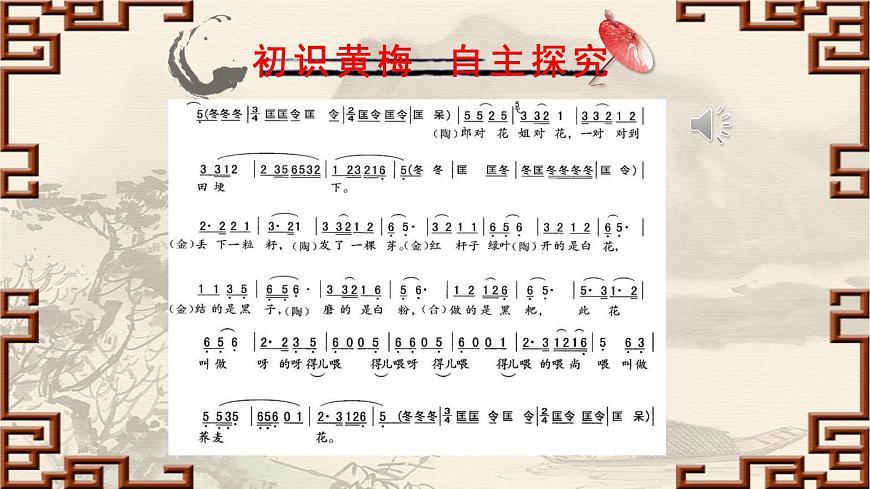 初识黄梅 自主探究
5(冬冬冬 | 3/4 匡匡令匡 令 | 2/4 匡令匡令 | 匡 呆) | 5 5 2 5 | 3 3 2 1 | 3 3 2 1 2 |
(陶)郎对 花 姐对 花, 一对 对到
3 3 1 2 | 2 3 5 6 5 3 2 | 1 2 3 2 1 6 | 5(冬 冬 | 匡 匡冬 | 冬匡冬冬冬冬 | 匡 令)
田埂 下。
2· 2 2 1 | 3· 2 1 | 3 3 2 1 2 | 6 5· | 3 2 1 1 | 6 5 6 | 3 2 1 2 | 6 5· |
(金)丢 下一粒 籽, (陶)发了一棵 芽。(金)红 杆子 绿叶(陶)开的是白 花,
1 1 3 5 | 6 5 6· | 3 3 2 1 6 | 5 6· | 1 2 1 2 6 | 6 5· | 5· 3 1· 2 |
(金)结的是黑 子,(陶) 磨 的 是白 粉,(合)做的 是 黑 粑, 此 花
6 5 6 | 2· 3 5 | 6 0 6 5 | 6 6 0 5 | 6 0 0 1 | 2· 3 1 2 1 6 | 5 6 3 |
叫做 呀 的呀 得儿喂 得儿喂呀 得儿喂 得儿喂 的喂尚 喂 叫做
5 5 3 5 | 6 5 6 0 1 | 2· 3 1 2 6 | 5 (冬冬冬 | 3/4 匡匡 令匡 令 | 2/4 匡令 匡令 | 匡 呆) |
荞麦 花。